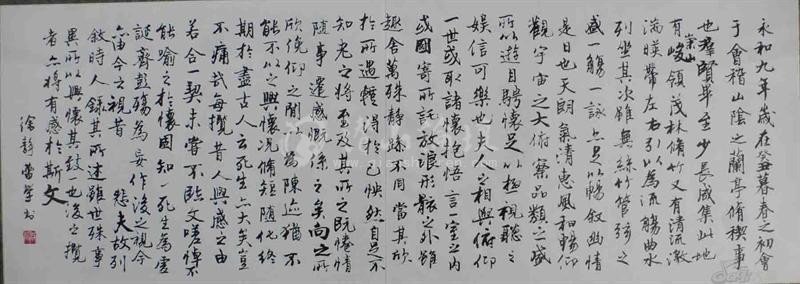 永和九年歲在癸丑暮春之初會
于會稽山陰之蘭亭脩稧事
也羣賢畢至少長咸集此地
有崇山峻領茂林脩竹又有清流激
湍暎帶左右引以為流觴曲水
列坐其次雖無絲竹管弦之
盛一觴一詠亦足以暢敘幽情
是日也天朗氣清惠風和暢仰
觀宇宙之大俯察品類之盛
所以遊目騁懷足以極視聽之
娛信可樂也夫人之相與俯仰
一世或取諸懷抱悟言一室之內
或因寄所託放浪形骸之外雖
趣舍萬殊靜躁不同當其欣
於所遇暫得於己怏然自足不
知老之將至及其所之既惓情
隨事遷感慨係之矣向之所
欣俛仰之間以為陳迹猶不
能不以之興懷況脩短隨化終
期於盡古人云死生亦大矣豈
不痛哉每攬昔人興感之由
若合一契未嘗不臨文嗟悼不
能喻之於懷固知一死生為虛
誕齊彭殤為妄作後之視今
亦由今之視昔悲夫故列
敘時人錄其所述雖世殊事
異所以興懷其致一也後之攬
者亦將有感於斯文
徐靜